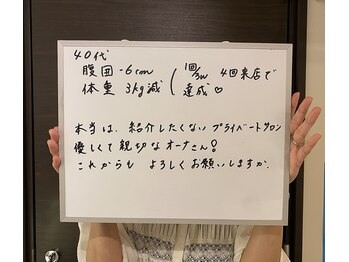 40代
腹囲 -6cm ( 1回/3w 4回来店で
体重 3kg減 ( 達成♡
本当は、紹介したくない プライベートサロン
優しくて 親切な オーナーさん!
これからも よろしく お願いしますm.